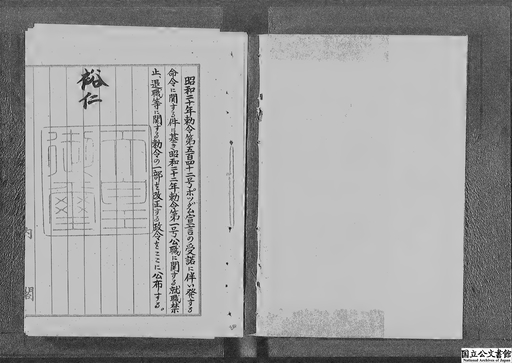 昭和二十年勅令第五百四十二号ポツダム宣言の受諾に伴い発する
命令に関する件に基き昭和二十二年勅令第一号公職に関する就職禁
止、退職等に関する勅令の一部を改正する政令をここに公布する。
裕仁
天皇
御璽
内閣
国立公文書館
National Archives of Japan